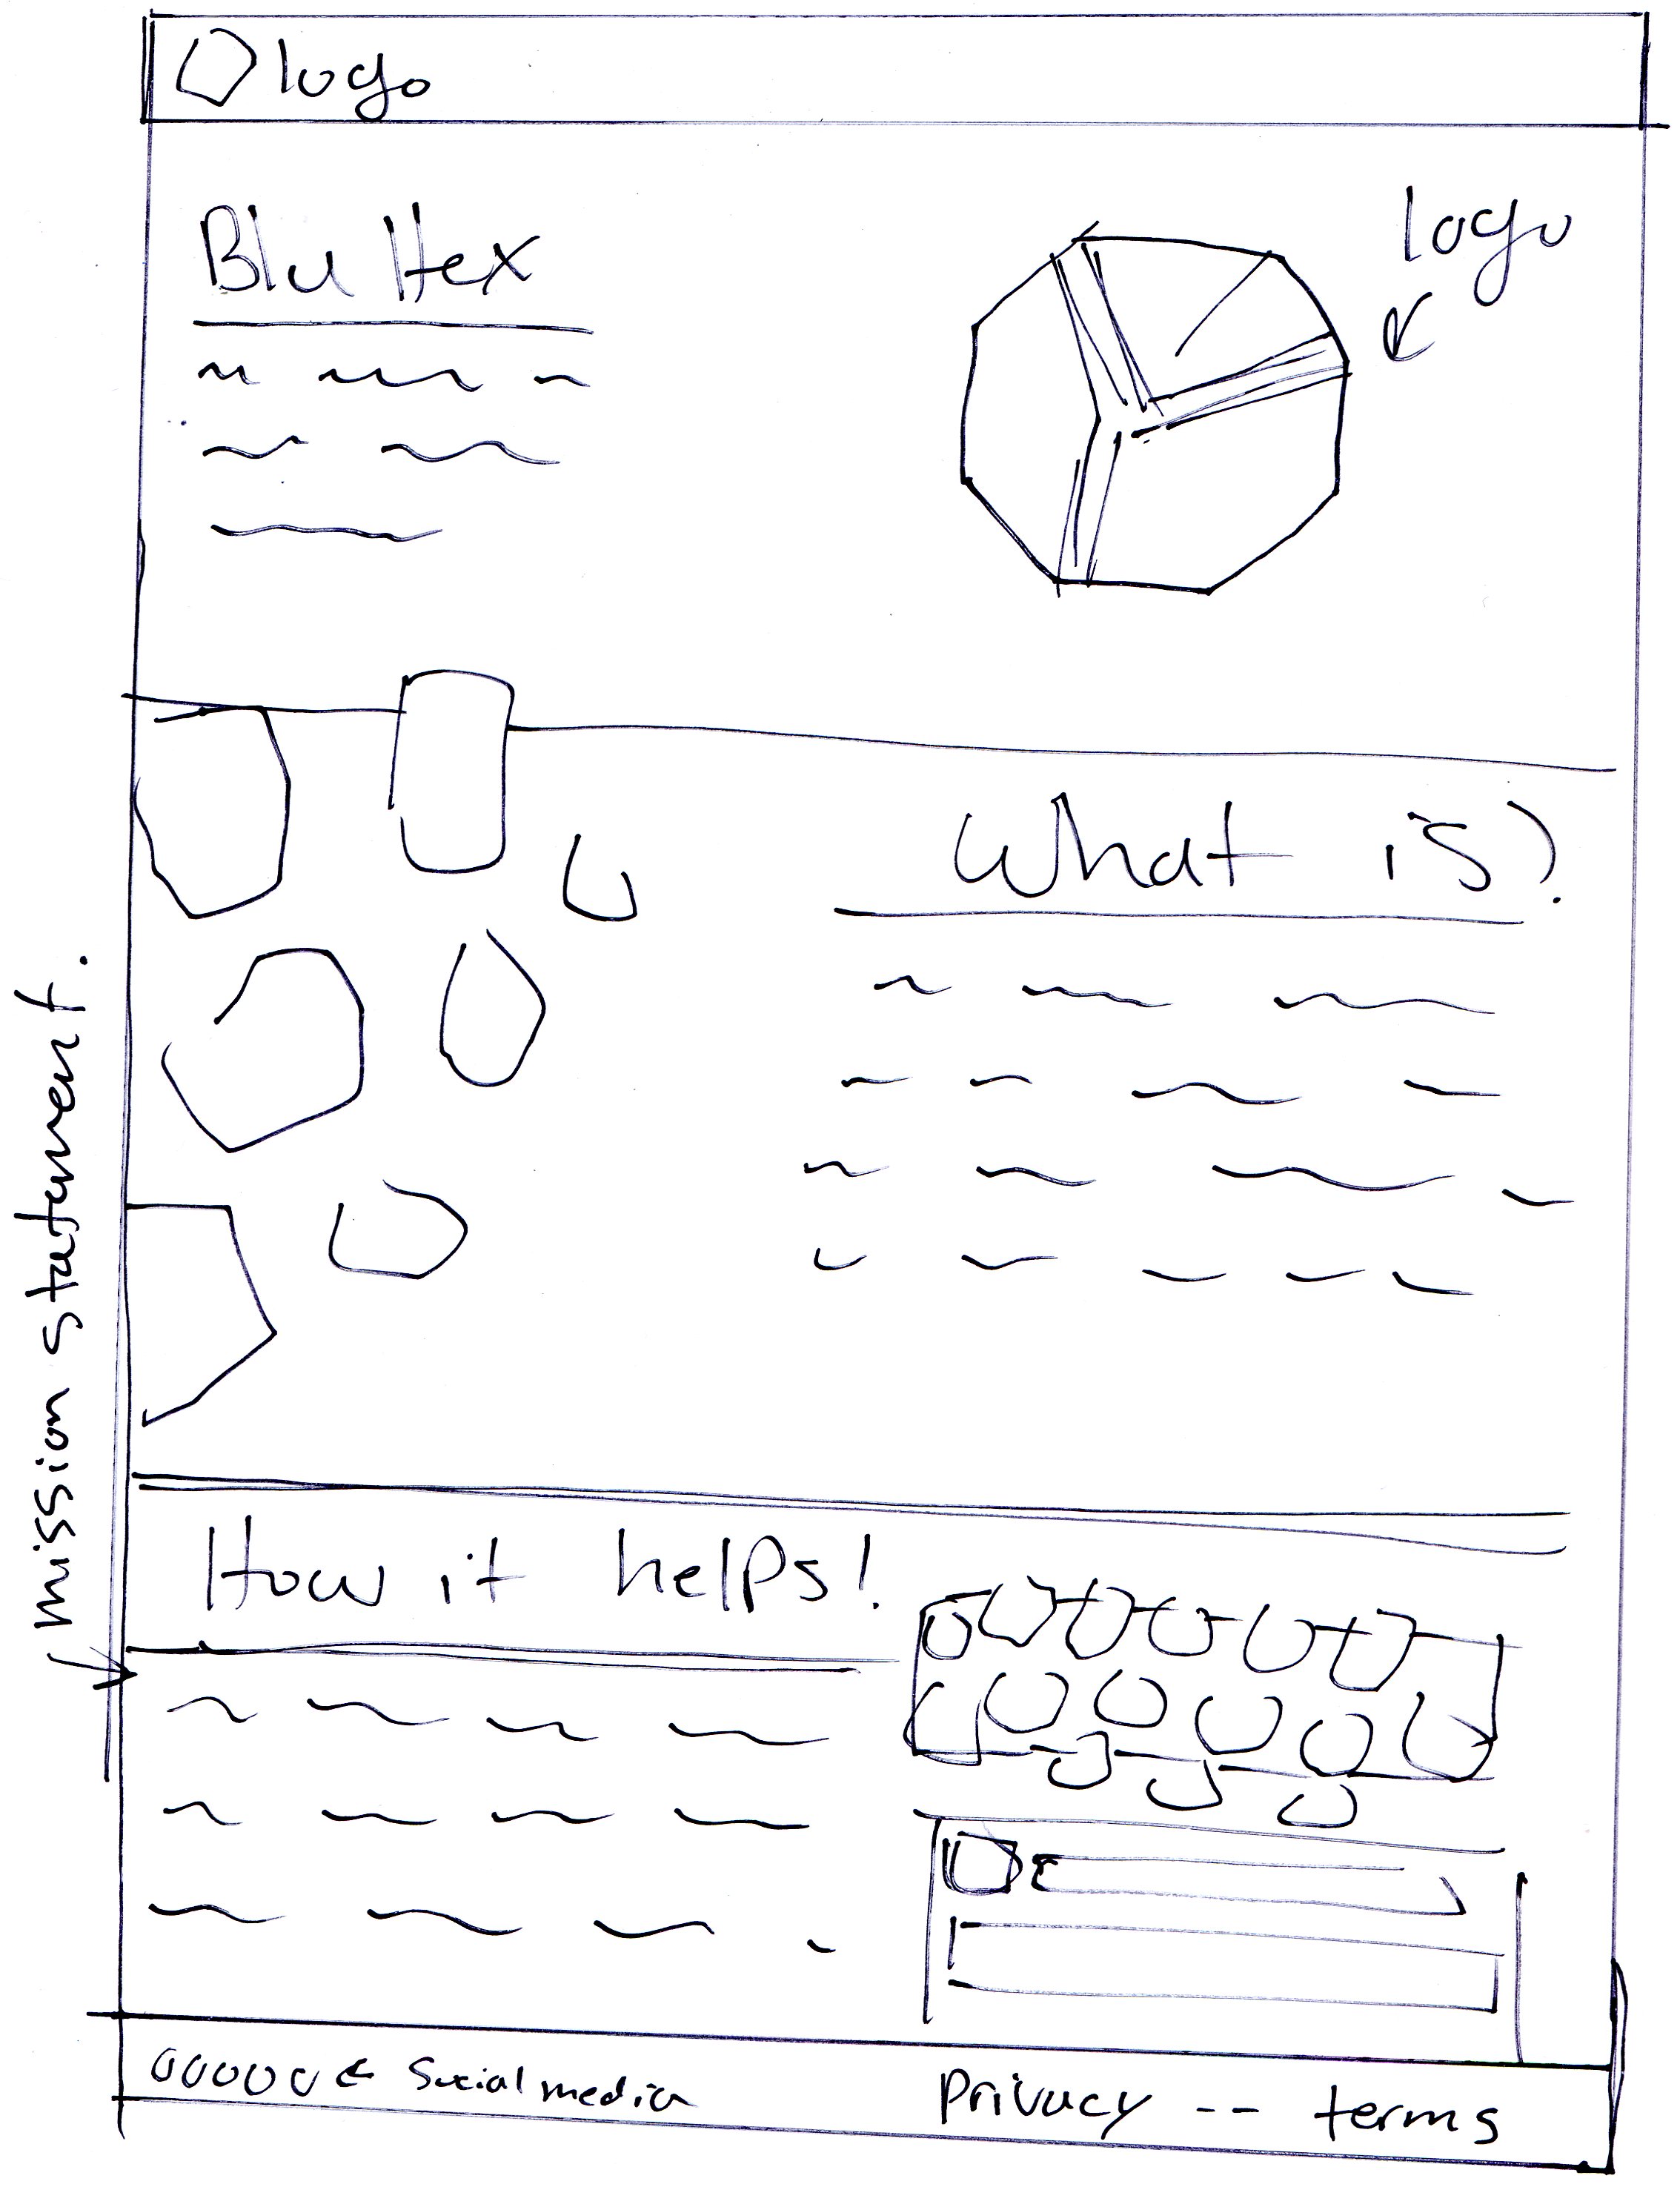 logo
Blu Hex
logo
What is?
mission statement.
How it helps!
Social media
Privacy -- terms